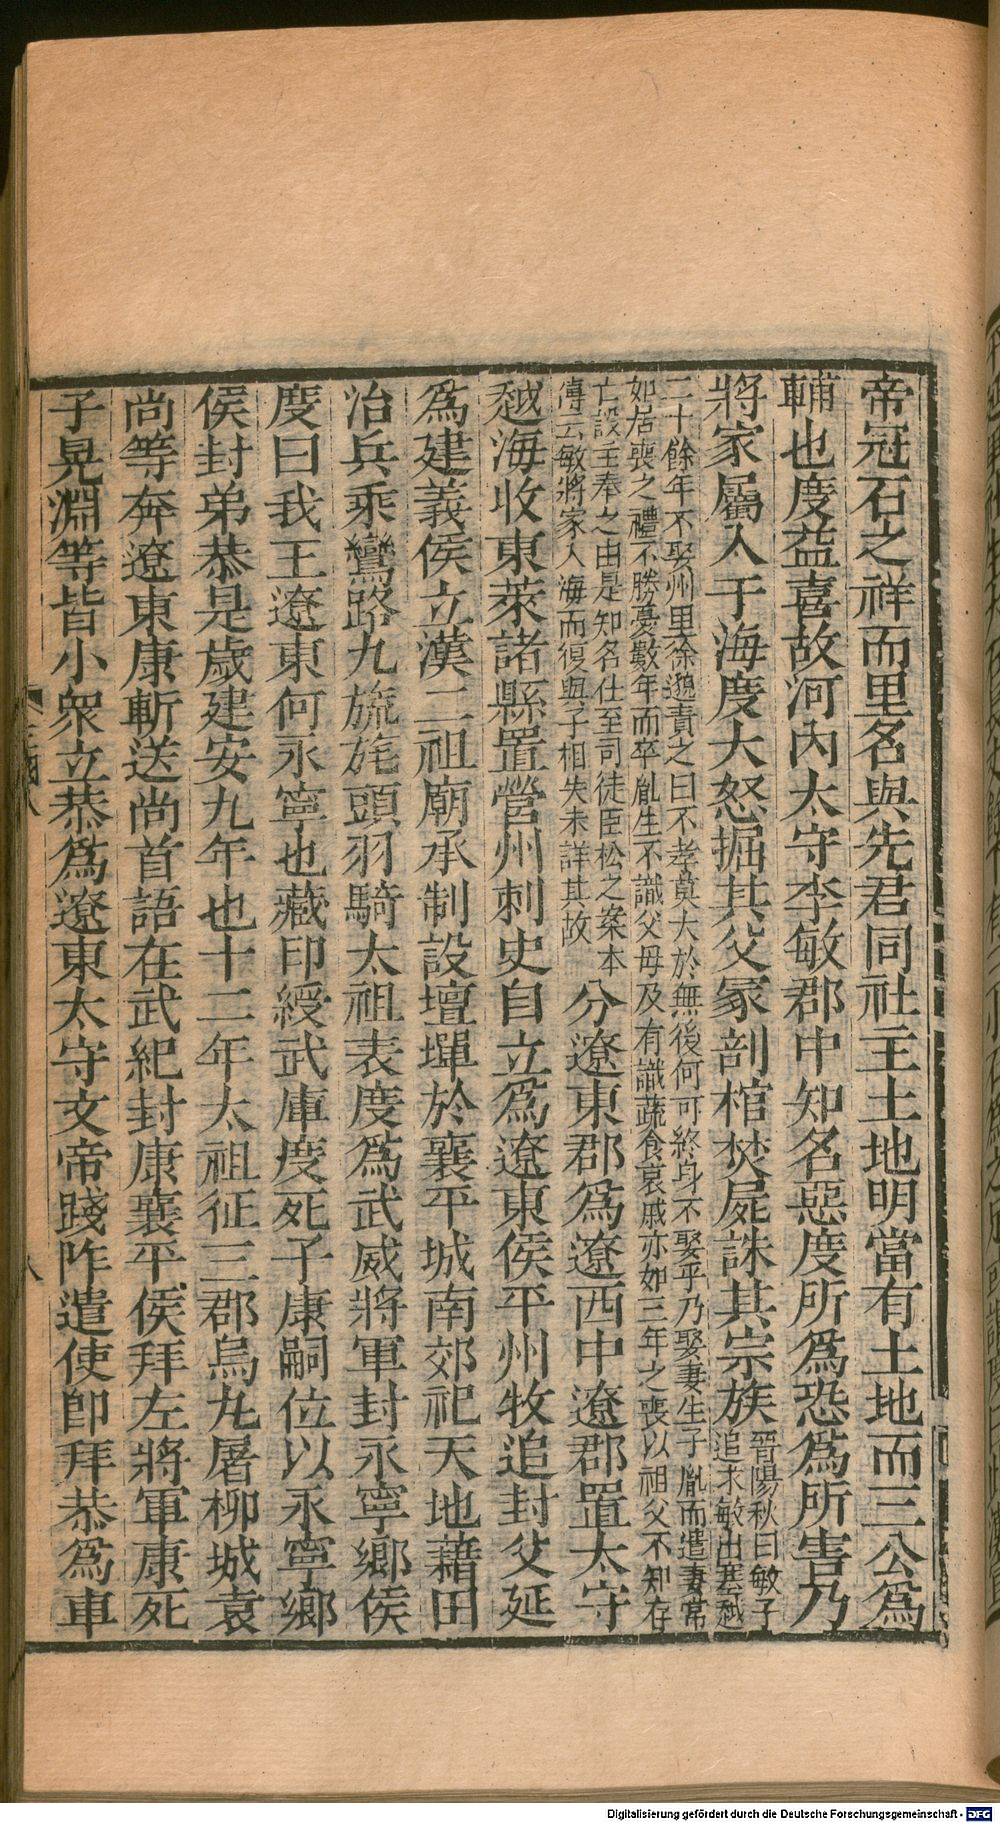 帝冠石之祥而里名與先君同社主土地明當有土地而三公爲
輔也度益喜故河內太守李敏郡中知名惡度所爲恐爲所害乃
將家屬入于海度大怒掘其父冢剖棺焚屍誅其宗族
晉陽秋曰敏子
追求敏出塞越
二十餘年不娶州里徐邈責之曰不孝莫大於無後何可終身不娶乎乃娶妻生子胤而遣妻常
如居喪之禮不勝憂數年而卒胤生不識父母及有識蔬食哀戚亦如三年之喪以祖父不知存
亡設主奉之由是知名仕至司徒臣松之案本
傳云敏將家入海而復與子相失未詳其故
分遼東郡爲遼西中遼郡置太守
越海收東萊諸縣置營州刺史自立爲遼東侯平州牧追封父延
爲建義侯立漢二祖廟承制設壇墠於襄平城南郊祀天地藉田
治兵乘鸞路九旒旄頭羽騎太祖表度爲武威將軍封永寧鄉侯
度曰我王遼東何永寧也藏印綬武庫度死子康嗣位以永寧鄉
侯封弟恭是歲建安九年也十二年太祖征三郡烏丸屠柳城袁
尚等奔遼東康斬送尚首語在武紀封康襄平侯拜左將軍康死
子晃淵等皆小衆立恭爲遼東太守文帝踐阼遣使卽拜恭爲車
Digitalisierung gefördert durch die Deutsche Forschungsgemeinschaft - DFG